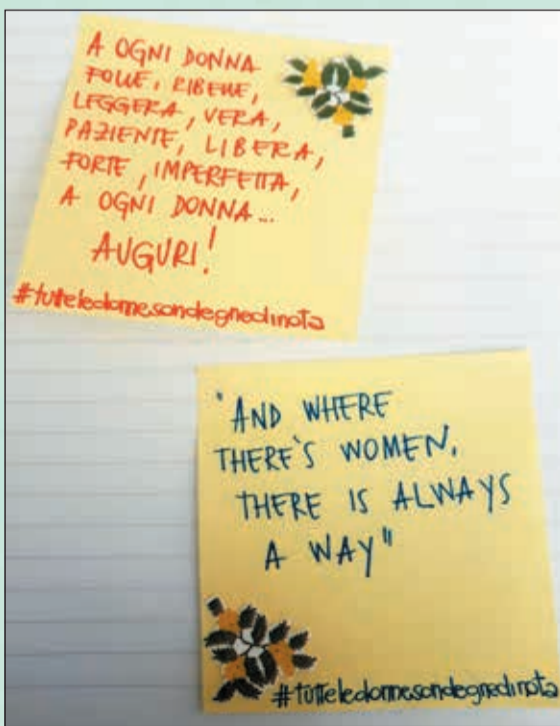 A OGNI DONNA
FOLLE, RIBELLE,
LEGGERA, VERA,
PAZIENTE, LIBERA,
FORTE, IMPERFETTA,
A OGNI DONNA...
AUGURI!
#tutteledonnesondegnedinota
"AND WHERE
THERE'S WOMEN,
THERE IS ALWAYS
A WAY"
#tutteledonnesondegnedinota